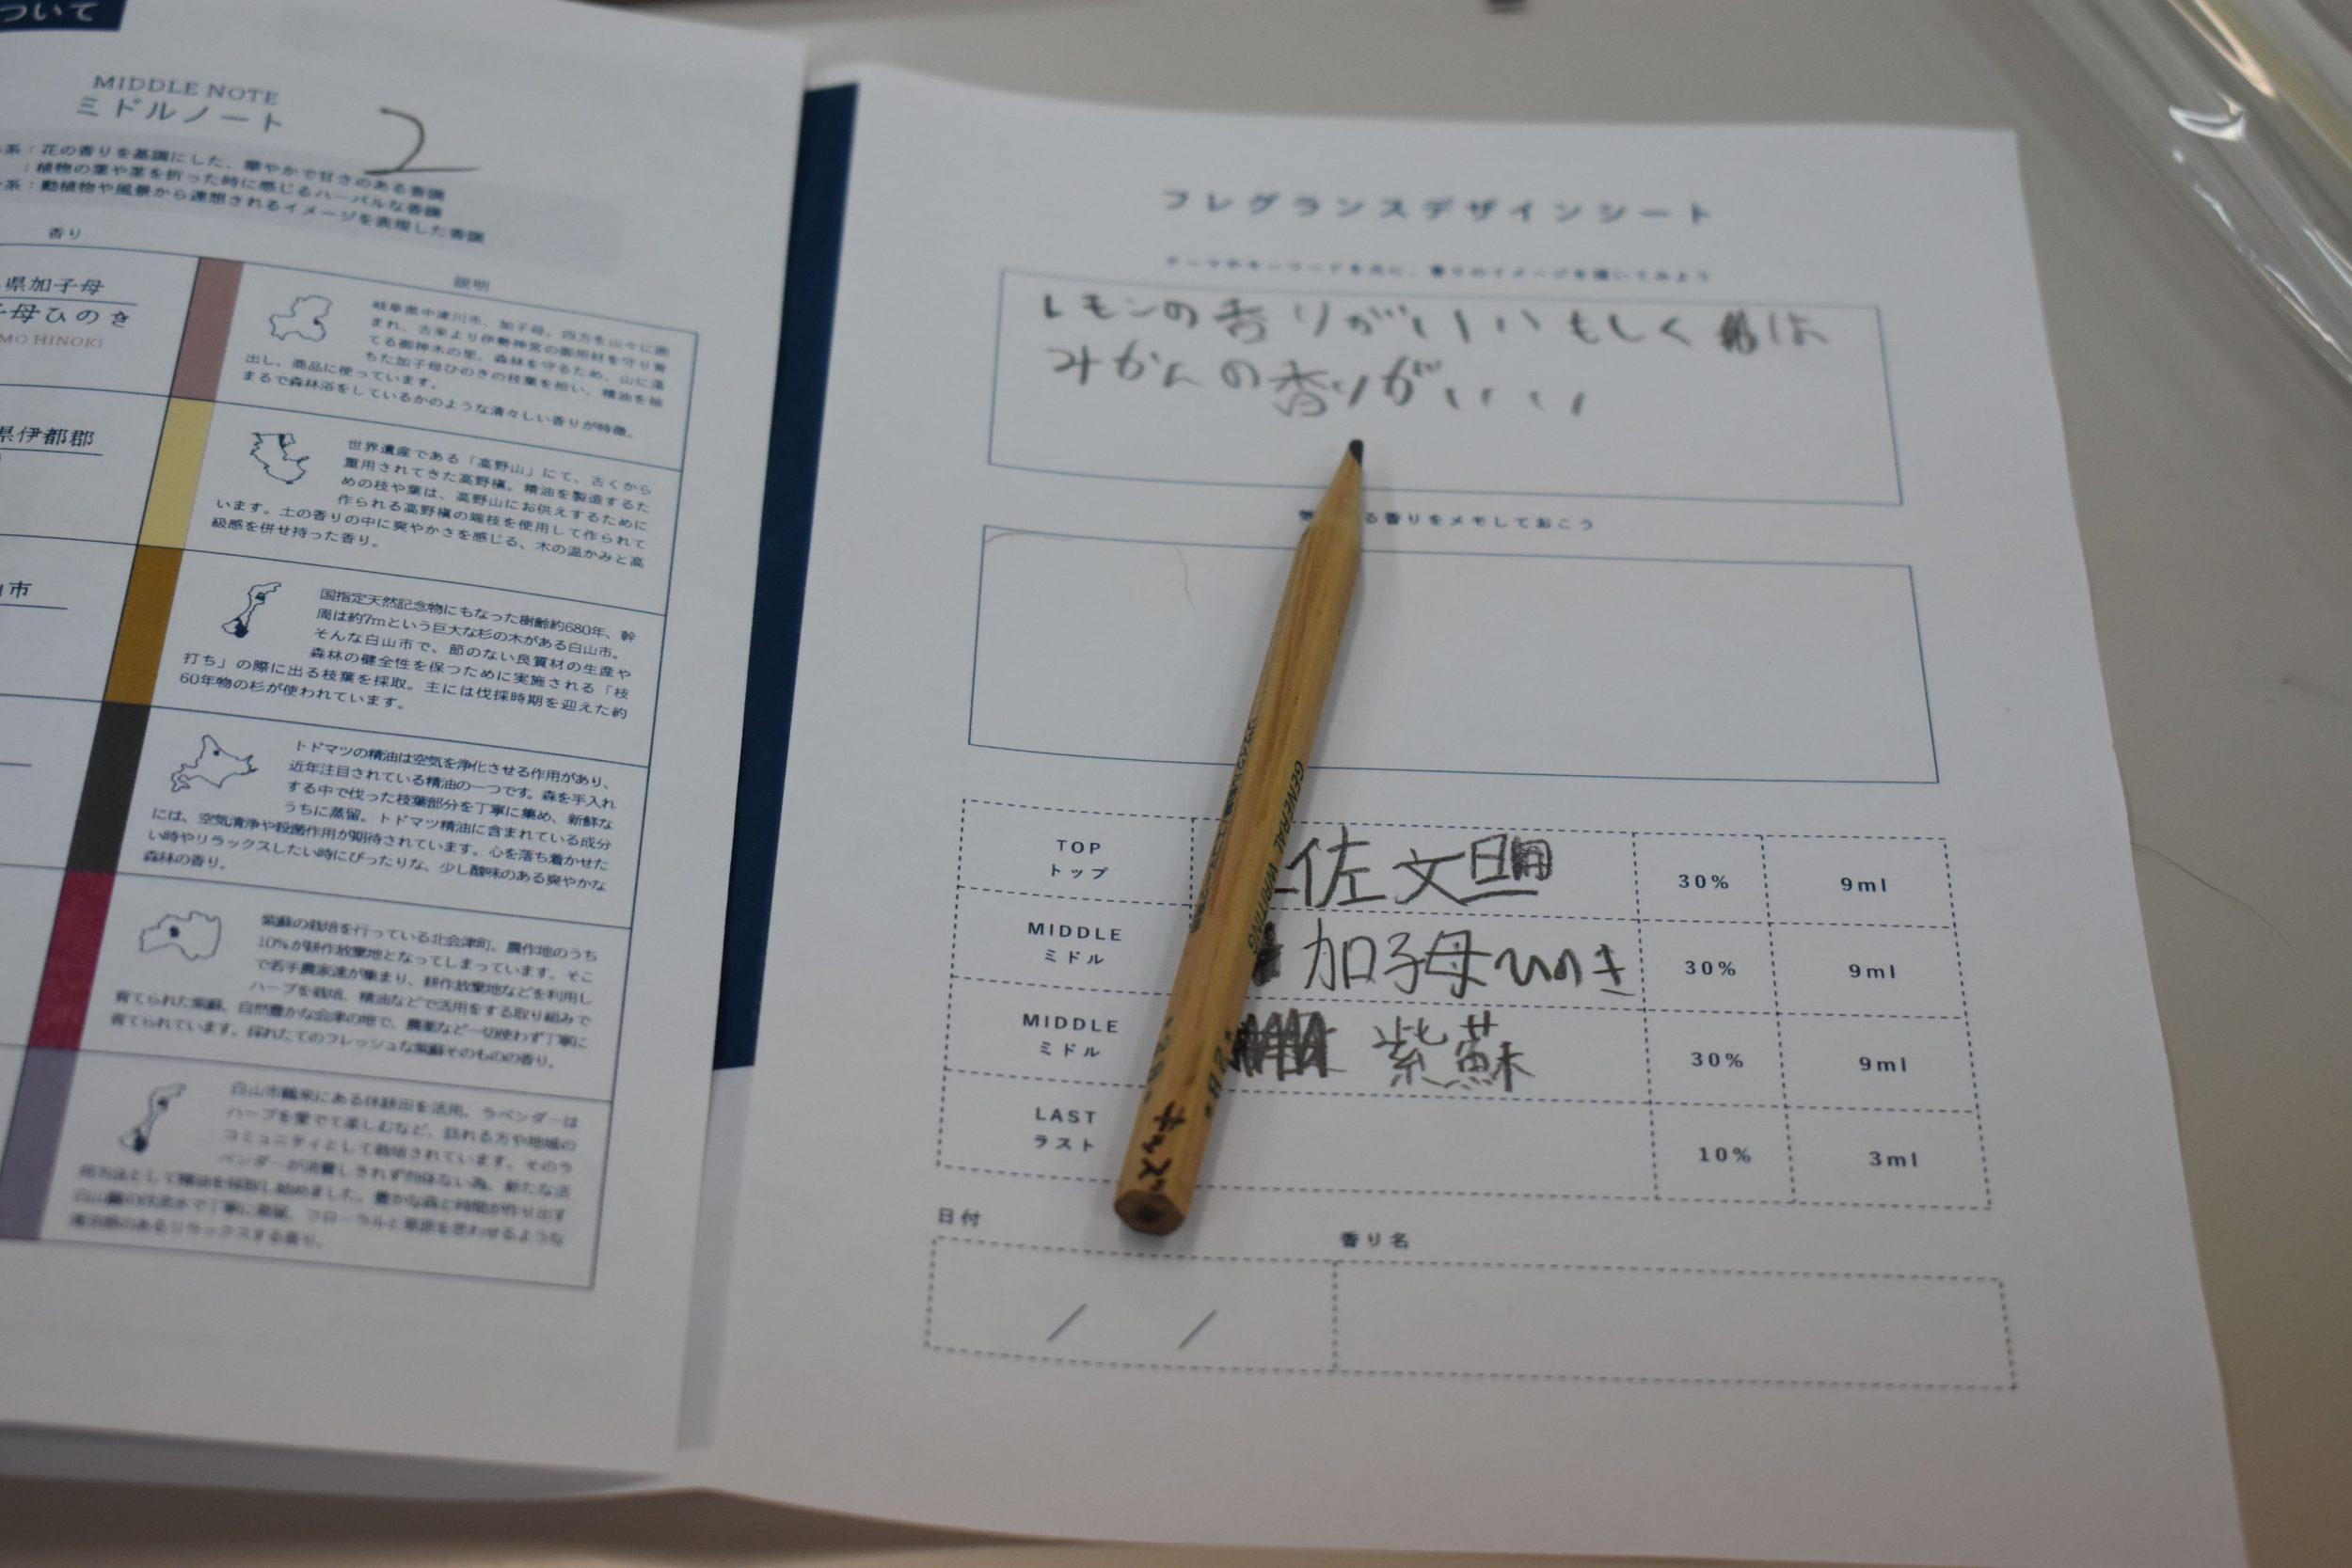 ついて
MIDDLE NOTE
ミドルノート
2
系：花の香りを基調にした、華やかで甘さのある香調
：植物の葉や茎を折った時に感じるハーバルな香調
系：動植物や風景から連想されるイメージを表現した香調
香り
説明
県加子母
子母ひのき
MO HINOKI
岐阜県中津川市、加子母。四方を山々に囲
まれ、古来より伊勢神宮の御用材を守り育
てる御神木の里。森林を守るため、山に落
ちた加子母ひのきの枝葉を拾い、精油を抽
出し、商品に使っています。
まるで森林浴をしているかのような清々しい香りが特徴。
県伊都郡
世界遺産である「高野山」にて、古くから
重用されてきた高野槇。精油を製造するた
めの枝や葉は、高野山にお供えするために
作られる高野槇の端枝を使用して作られて
います。土の香りの中に爽やかさを感じる、木の温かみと高
級感を併せ持った香り。
山市
国指定天然記念物にもなった樹齢約680年、幹
周は約7mという巨大な杉の木がある白山市。
そんな白山市で、節のない良質材の生産や
森林の健全性を保つために実施される「枝
打ち」の際に出る枝葉を採取。主には伐採時期を迎えた約
60年物の杉が使われています。
トドマツの精油は空気を浄化させる作用があり、
近年注目されている精油の一つです。森を手入れ
する中で伐った枝葉部分を丁寧に集め、新鮮な
うちに蒸留。トドマツ精油に含まれている成分
には、空気清浄や殺菌作用が期待されています。心を落ち着かせた
い時やリラックスしたい時にぴったりな、少し酸味のある爽やかな
森林の香り。
紫蘇の栽培を行っている北会津町。農作地のうち
10%が耕作放棄地となってしまっています。そこ
で若手農家達が集まり、耕作放棄地などを利用し
ハーブを栽培、精油などで活用をする取り組みで
育てられた紫蘇。自然豊かな会津の地で、農薬など一切使わず丁寧に
育てられています。採れたてのフレッシュな紫蘇そのものの香り。
白山市鶴来にある休耕田を活用。ラベンダーは
ハーブを愛でて楽しむなど、訪れる方や地域の
コミュニティとして栽培されています。そのラ
ベンダーが消費しきれず勿体ない為、新たな活
用方法として精油を採取し始めました。豊かな森と時間が作り出す
白山麓の伏流水で丁寧に蒸留。フローラルと草原を思わせるような
清涼感のあるリラックスする香り。
フレグランスデザインシート
テーマやキーワードを元に、香りのイメージを描いてみよう
レモンの香りがいいもしくは
みかんの香りがいい
る香りをメモしておこう
TOP
トップ
佐文旦
30%
9ml
MIDDLE
ミドル
加子母ひのき
30%
9ml
MIDDLE
ミドル
紫蘇
30%
9ml
LAST
ラスト
10%
3ml
GENERAL WRITING
日付
香り名
/ /